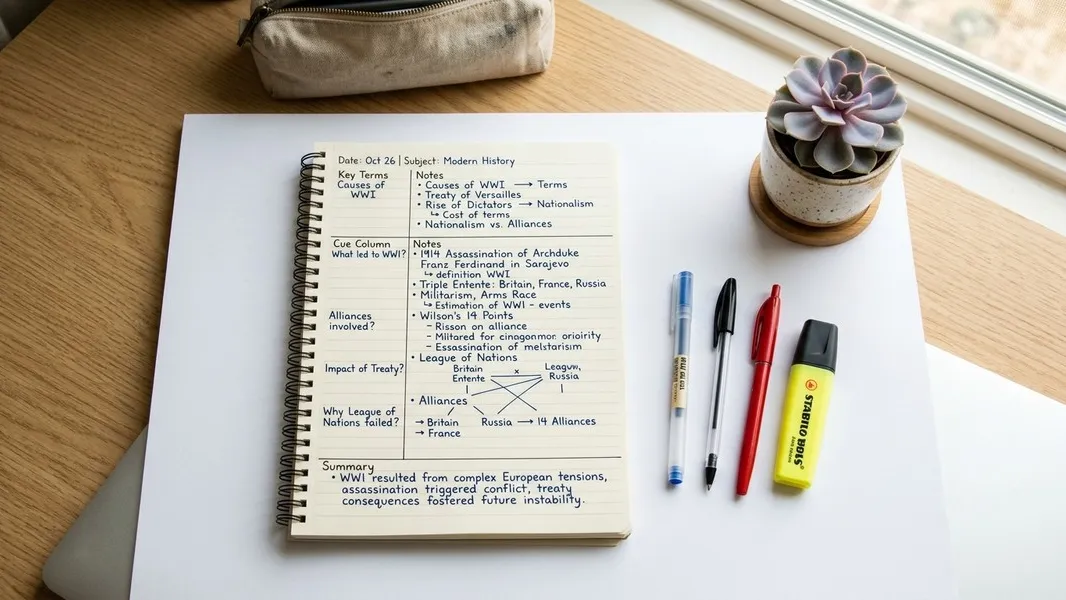 Date: Oct 26 | Subject: Modern History
Key Terms
Causes of
WWI
Notes
• Causes of WWI → Terms
• Treaty of Versailles
• Rise of Dictators → Nationalism
↳ Cost of terms
• Nationalism vs. Alliances
Cue Column
What led to WWI?
Alliances
involved?
Impact of Treaty?
Why League of
Nations failed?
Notes
• 1914 Assassination of Archduke
Franz Ferdinand in Sarajevo
↳ definition WWI
• Triple Entente: Britain, France, Russia
• Militarism, Arms Race
↳ Estimation of WWI - events
• Wilson's 14 Points
- Risson on alliance
- Militared for cinogonmor. orioirity
- Essassination of melstarism
• League of Nations
Britain x Leaguw,
Entente Russia
• Alliances
→ Britain Russia → 14 Alliances
→ France
Summary
• WWI resulted from complex European tensions,
assassination triggered conflict, treaty
consequences fostered future instability.
STABILO BOIS